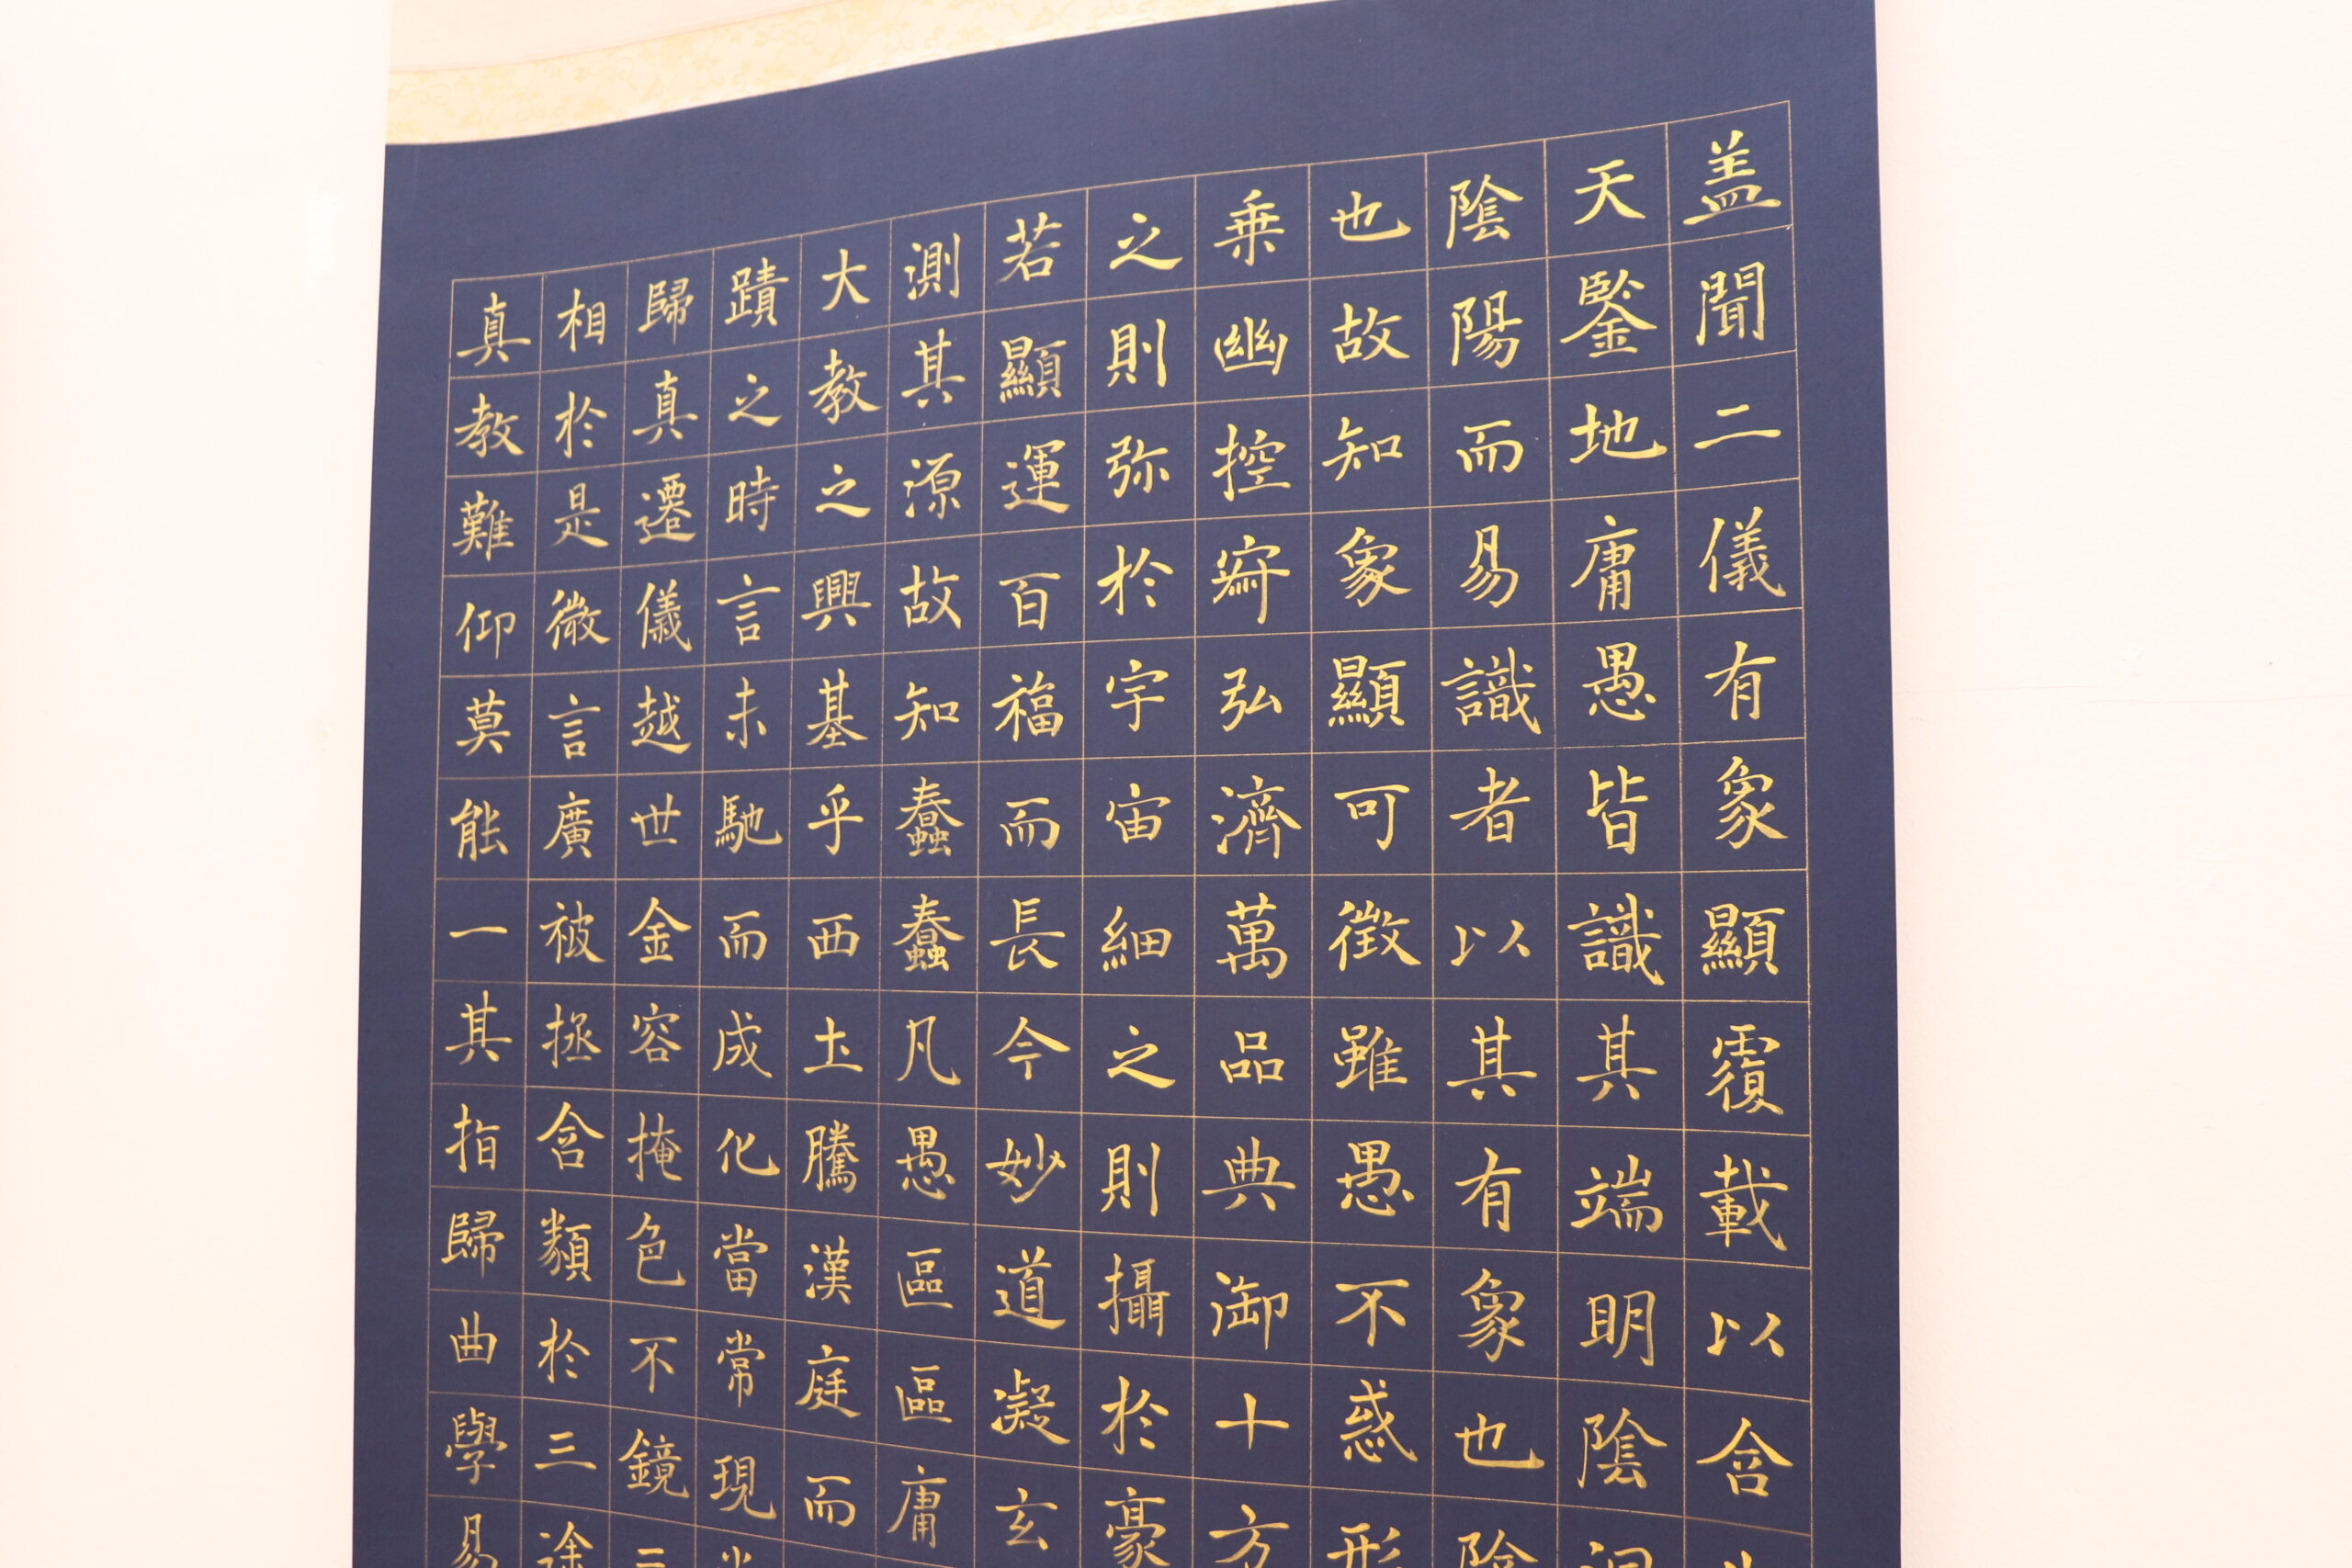 盖聞二儀有象顯覆載以含
天鑒地庸愚皆識其端明陰洞
陰陽而易識者以其有象也陰
也故知象顯可徵雖愚不惑形
乗幽控寂弘濟萬品典御十方
之則弥於宇宙細之則攝於豪
若顯運百福而長今妙道凝玄
測其源故知蠢蠢凡愚區區庸
大教之興基乎西土騰漢庭而
蹟之時言未馳而成化當常現
歸真遷儀越世金容掩色不鏡
相於是微言廣被拯含類於三途
真教難仰莫能一其指歸曲學易